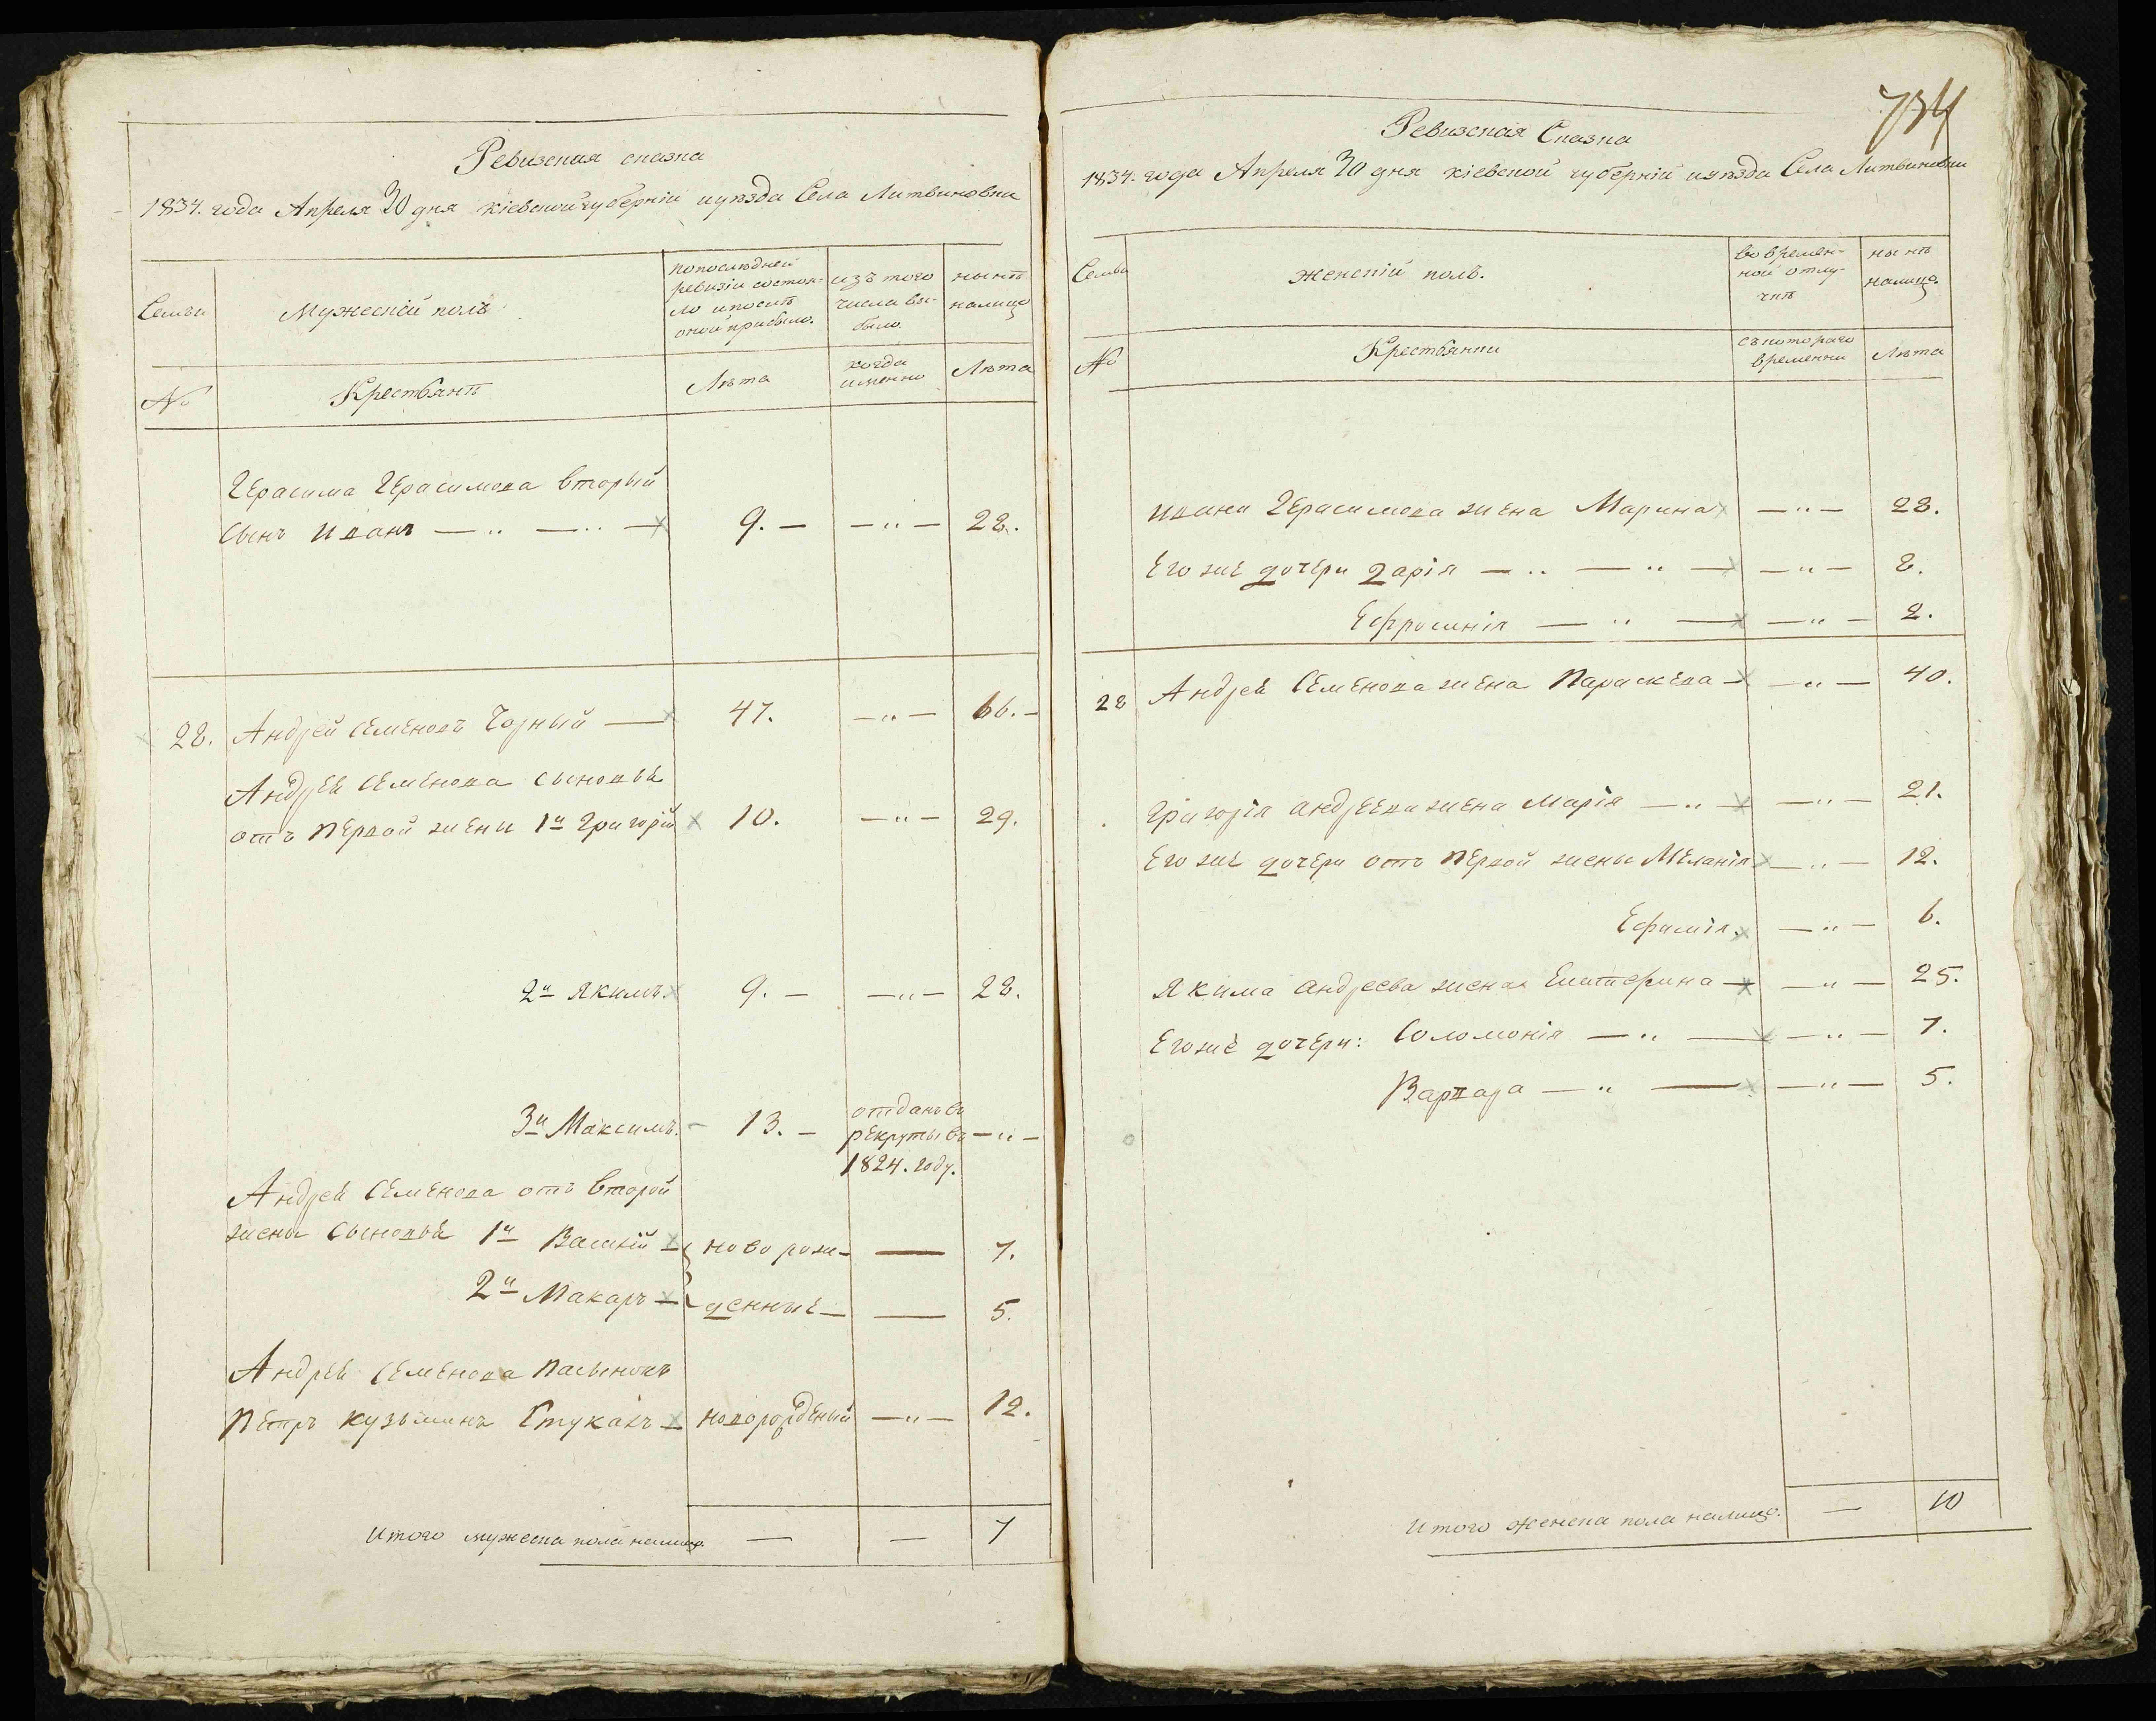 Ревизская сказка
1834. года Апреля 30 дня Кіевской губерніи и уезда Села Литвиновки
Семьи
Мужескій полъ
по последней
ревизіи состоя-
ло и после
оной прибыло.
изъ того
числа вы-
было.
ныне
налицо
№
Крестьяне
Лета
когда
именно
Лета
Герасима Герасимова вторый
сынъ Иванъ — „ — „ — 9. — — „ — 28.
28. Андрей Семеновъ Чорный — 47. — „ — 66. —
Андрея Семенова сыновья
отъ первой жены 1й Григорій 10. — „ — 29.
2й Якимъ. 9. — — „ — 28.
3й Максимъ. 13. — отданъ въ
рекруты въ — „ —
1824. году.
Андрея Семенова отъ второй
жены сыновья 1й Василій — ново рож- — 7.
2й Макаръ — денные — — 5.
Андрея Семенова пасынокъ
Петръ Кузьминъ Стукалъ — новорожденый — „ — 12.
Итого мужеска пола налицо. — — 7
734
Ревизская Сказка
1834. года Апреля 30 дня Кіевской губерніи и уезда Села Литвиновки
Семьи
Женскій полъ.
во времен-
ной отлу-
чке
ныне
налицо.
№
Крестьянки
съ котораго
времени
Лета
Ивана Герасимова жена Марина — „ — 28.
Его же дочери Дарія — „ — „ — — „ — 8.
Ефросинія — „ — — „ — 2.
28 Андрея Семенова жена Параскева — — „ — 40.
Григорія Андреева жена Марія — „ — — „ — 21.
Его же дочери отъ первой жены Меланія — „ — 12.
Ефимія. — „ — 6.
Якима Андреева жена Екатерина — — „ — 25.
Его же дочери: Соломонія — „ — — „ — 7.
Варвара — „ — — „ — 5.
Итого женска пола налицо. — 10